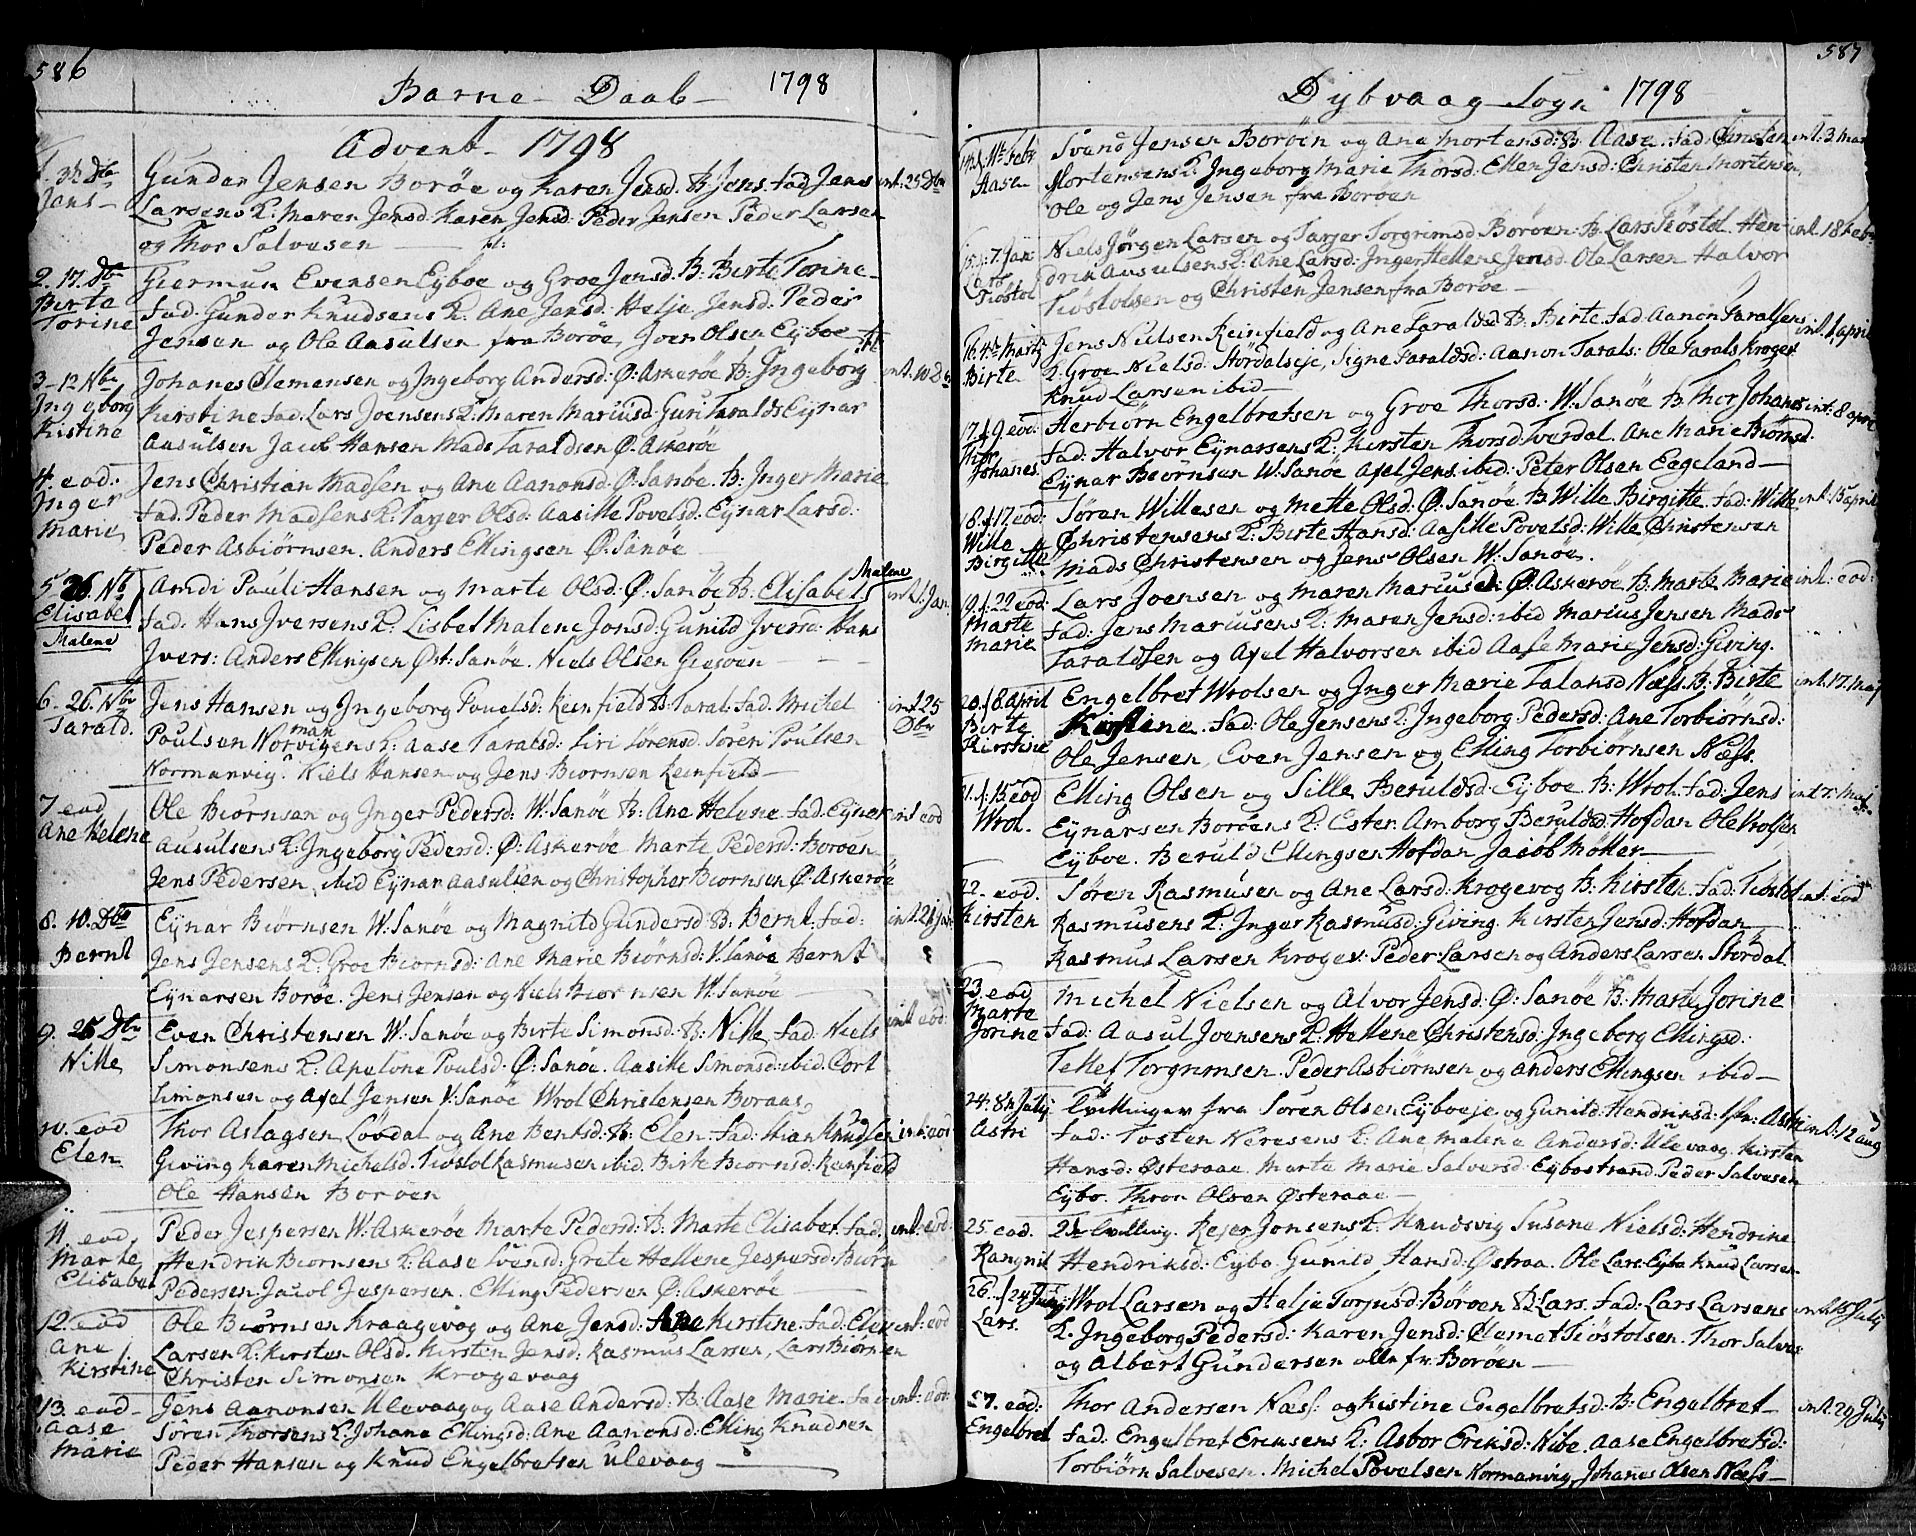 586
Barne - Daab - 1798
Advent - 1798
1. 3de Dbr
Jens
Gunder Jensen Borøe og Karen Jensd: B: Jens. fad: Jens int: 25 Dbr
Larsens K: Maren Jensd: Karen Jensd: Peder Jensen Peder Larsen
og Thor Salvesen
2. 17. Dbr
Birte
Torine
Giermun Evensen Eyboe og Groe Jensd: B: Birte Torine
fad: Gunder Knudsens K: Ane Jensd: Helje Jensd: Peder
Jensen og Ole Aasulsen fra Borøe, Joen Olsen Eyboe
3 - 12 Nbr
Ingeborg
Kistine
Johanes Clemensen og Ingeborg Andersd: Ø: Askerøe B: Ingeborg int: 10 Dbr
Kirstine fad: Lars Joensens K: Maren Mariusd: Guri Taralds Eynar
Aasulsen Jacob Hansen Mads Taraldsen Ø: Askerøe
4. eod:
Inger
Marie
Jens Christian Madsen og Ane Aanonsd: Ø: Sanøe B: Inger Marie
fad: Peder Madsens K: Tarjer Olsd: Aasille Povelsd: Eynar Larsd:
Peder Asbiørnsen. Anders Ellingsen Ø: Sanøe
5 26. Nbr
Elisabet
Malene
Malene
Amdi Pauli Hansen og Marte Olsd: Ø: Sanøe B: Elisabeth int: 1. Jan.
fad: Hans Iversens K: Lisbet Malene Jonsd: Gunild Iversd: Hans
Ivers: Anders Ellingsen Øst: Sanøe. Niels Olsen Giesøen
6. 26. Nbr
Tarald.
Jens Hansen og Ingeborg Povelsd: Keinfield B: Taral. fad: Michel int 25 Dbr
man
Poulsen Norvigens K: Aase Taralsd: Siri Sørensd: Søren Poulsen
Normanvig. Niels Hansen og Jens Biørnsen Keinfield
7. eod
Ane Helene
Ole Biørnsen og Inger Pedersd: W: Sanøe B: Ane Helene fad: Eynar int eod
Aasulsens K: Ingeborg Pedersd: Ø: Askerøe Marte Pedersd: Borøen
Jens Pedersen ibid Eynar Aasulsen og Christopher Biørnsen Ø: Askerøe
8. 10. Dbr
Bernt
Eynar Biørnsen W: Sanøe og Magnild Gundersd: B: Bernt. fad: int: 21 Jan
Jens Jensens K: Groe Biørnsd: Ane Marie Biørnsd: V: Sanøe Bernt
Eynarsen Borøe. Jens Jensen og Niels Biørnsen W: Sanøe
9. 26 Dbr
Nille
Even Christensen W: Sanøe og Birte Simonsd: B: Nille fad: Niels int eod:
Simonsens K: Apelone Poulsd: Ø: Sanøe. Aasille Simonsd: ibid Cort
Simonsen og Axel Jensen V: Sanøe Wrol Christensen Boraas
10. eod
Elen
Thor Aslagsen Løvdal og Ane Bentsd: B: Elen. fad: Stian Knudsen int: eod
Giving Karen Michelsd. Tiøstol Rasmusen ibid. Birte Biørnsd: Keinfield
Ole Hansen Borøen
11. eod
Marte
Elisabet
Peder Jespersen W: Askerøe Marte Pedersd: B: Marte Elisabet. fad: int: eod:
Hendrik Biørnsens K: Aase Svensd: Grete Hellene Jespersd: Biørn
Pedersen Jacob Jespersen. Elling Pedersen Ø: Askerøe
12. eod
Ane
Kirstine
Ole Biørnsen Kraagevog og Ane Jensd: Ane Kirstine. fad: int: eod
Larsen K: Kirsten Olsd. Kirstin Jensd: Rasmus Larsen, Lars Biørnsen
Christen Simonsen Krogevaag
13. eod
Aase
Marie
Jens Aanonsen Ulevaag og Aase Andersd: B: Aase Marie. fad: int: eod:
Søren Thorsens K: Johane Ellingsd: Ane Aanonsd: Elling Knudsen
Peder Hansen og Knud Engelbretsen Ulevaag
587
Dybvaag Sogn 1798
14. 11te Febr
Aasen
Svend Jensen Borøen og Ane Mortensd: B: Aase. fad: Christen int: 3 Mar
Mortensens K: Ingeborg Marie Thorsd: Ellen Jensd: Christen Mortensen,
Ole og Jens Jensen fra Borøen
15. 7. Jan
Lars
Tiøstol
Niels Jørgen Larsen og Tarjer Torgrimsd: Borøen B: Lars Tiøstol. Hen- int 18 Febr
drik Aasulsens K: Ane Larsd: Inger Hellene Jensd: Ole Larsen Halvor
Tiøstolsen og Christen Jensen fra Borøe
16. 4de Martj
Birte
Jens Nielsen Keinfield og Ane Taraldsd B: Birte fad: Aanon Taralsens int. 1 April
K: Groe Nielsd: Størdalseje, Signe Taraldsd: Aanon Tarals: Ole Tarals Krogev
Knud Larsen ibid
17. 9. eod:
Thor
Johanes
Herbiørn Engelbretsen og Groe Thorsd: W: Sanøe B: Thor Johanes int: 8 April
fad: Halvor Eynarsens K: Kirsten Thorsd: Tverdal. Ane Marie Biørnsd.
Eynar Biørnsen W: Sanøe Axel Jens: ibid: Peter Olsen Eegeland
18. 17. eod:
Wille
Birgitte
Søren Willesen og Mette Olsd: Ø: Sanøe B: Wille Birgitte fad: Wille int: 15 April
Christensens K: Birte Hansd: Aasille Povelsd: Wille Christensen
Mads Christensen og Jens Olsen W: Sanøe.
19. 22 eod:
Marte
Marie
Lars Joensen og Maren Mariusd: Ø: Askerøe B: Marte Marie int: eod:
fad: Jens Mariusens K: Maren Jensd: ibid Marius Jensen Mads
Taraldsen og Axel Halvorsen ibid Aase Marie Jensd: Giving.
20. 8. April
Birte
Kirstine
Engelbret Wrolsen og Inger Marie Talaksd Næss. B: Birte int. 17. Maj
Kirstine. fad: Ole Jensens K: Ingeborg Pedersd: Ane Torbiørnsd:
Ole Jensen, Even Jensen og Elling Torbiørnsen Næss.
21. 15 eod
Wrol.
Elling Olsen og Sille Beruldsd: Eyboe B: Wrol fad: Jens int 7. Maj
Eynarsen Borøens K: Ester. Amborg Beruldsd Hofdan Ole Wrolsen
Eyboe. Beruld Ellingsen Hofdan Jacob Møller
22. eod
Kirsten
Søren Rasmusen og Ane Larsd: Krogevog B: Kirsten fad: Tiøstol int: eod
Rasmusens K: Inger Rasmusd: Giving Kirsten Jensd: Hofdan
Rasmus Larsen Krogev: Peder Larsen og Anders Larsen Stordal
23. eod
Marte
Jorine
Michel Nielsen og Alvor Jensd: Ø: Sanøe B: Marte Jorine
fad: Aasul Joensens K: Hellene Christensd: Ingeborg Ellingsd:
Tellef Torgrimsen. Peder Asbiørnsen og Anders Ellingsen ibid
24. 8de Julij
Astri
Tvillinger fra Søren Olsen Eyboeje og Gunild Hendriksd: Astri int: 12 Aug
fad: Tosten Neresens K: Ane Malene Andersd: Ulevaag. Kirsten
Hansd: Østeraae. Marte Marie Salvesd: Eybostrand. Peder Salvesen
Eybo. Thron Olsen Østeraae
25. eod.
Rangnil
2de tvilling. Rejer Jonsens K: Knudsvig Susane Nielsd: Hendrine
Hendriksd: Eybo. Gunild Hansd: Østraa. Ole Lars: Eybo Knud Larsen
26. 24 Julij
Lars.
Wrol Larsen og Helje Torjusd: Borøen B: Lars. fad: Lars Larsens int 15 Julij
K. Ingeborg Pedersd: Karen Jensd: Clemet Tiøstolsen. Thor Salves
og Albert Gundersen alle fr: Borøen
27. eod:
Engelbret
Thor Andersen Næss: og Kistine Engelbretsd: B: Engelbret int. 29 Julij
fad: Engelbret Eriksens K: Asbor Eriksd: Nibe. Aase Engelbretsd:
Torbiørn Salvesen. Michel Povelsen Normanvig Johanes Olsen Næss